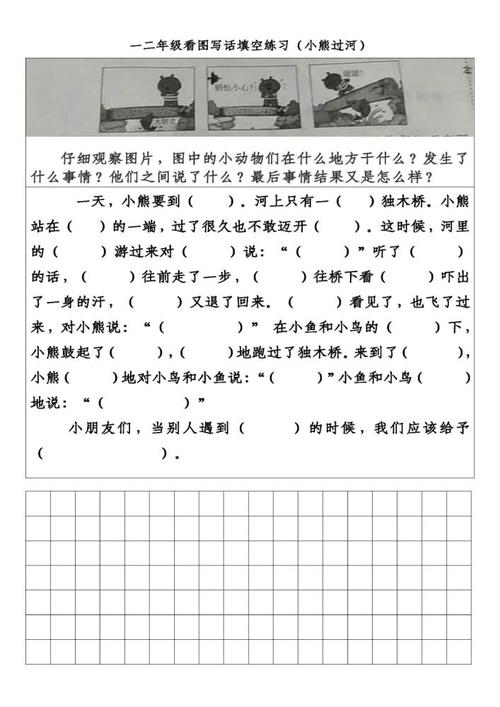 一二年级看图写话填空练习（小熊过河）
别怕小心！
谢谢！
仔细观察图片，图中的小动物们在什么地方干什么？发生了
什么事情？他们之间说了什么？最后事情结果又是怎么样？
一天，小熊要到（    ）。河上只有一（    ）独木桥。小熊
站在（    ）的一端，过了很久也不敢迈开（    ）。这时候，河里
的（    ）游过来对（    ）说：“（        ）”听了（    ）
的话，（    ）往前走了一步，（    ）往桥下看（    ）吓出
了一身的汗，（    ）又退了回来。（    ）看见了，也飞了过
来，对小熊说：“（            ）” 在小鱼和小鸟的（    ）下，
小熊鼓起了（    ），（    ）地跑过了独木桥。来到了（    ），
小熊（    ）地对小鸟和小鱼说：“（    ）”小鱼和小鸟（    ）
地说：“（            ）”
小朋友们，当别人遇到（    ）的时候，我们应该给予
（            ）。